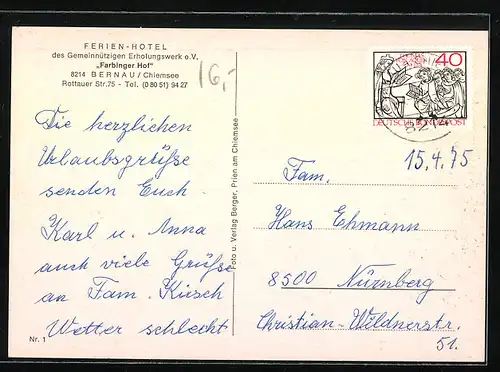 FERIEN-HOTEL
des Gemeinnützigen Erholungswerk e.V.
„Farbinger Hof"
8214 BERNAU/Chiemsee
Rottauer Str.75 - Tel. (0 80 51) 94 27
16,-
40
DEUTSCHE BUNDESPOST
8214
15.4.75
Die herzlichen
Urlaubsgrüße
senden Euch
Karl u. Anna
auch viele Grüße
an Fam. Kirsch
Wetter schlecht
Nr. 1
Foto u. Verlag Berger, Prien am Chiemsee
Fam.
Hans Ehmann
8500 Nürnberg
Christian-Wildnerstr.
51.